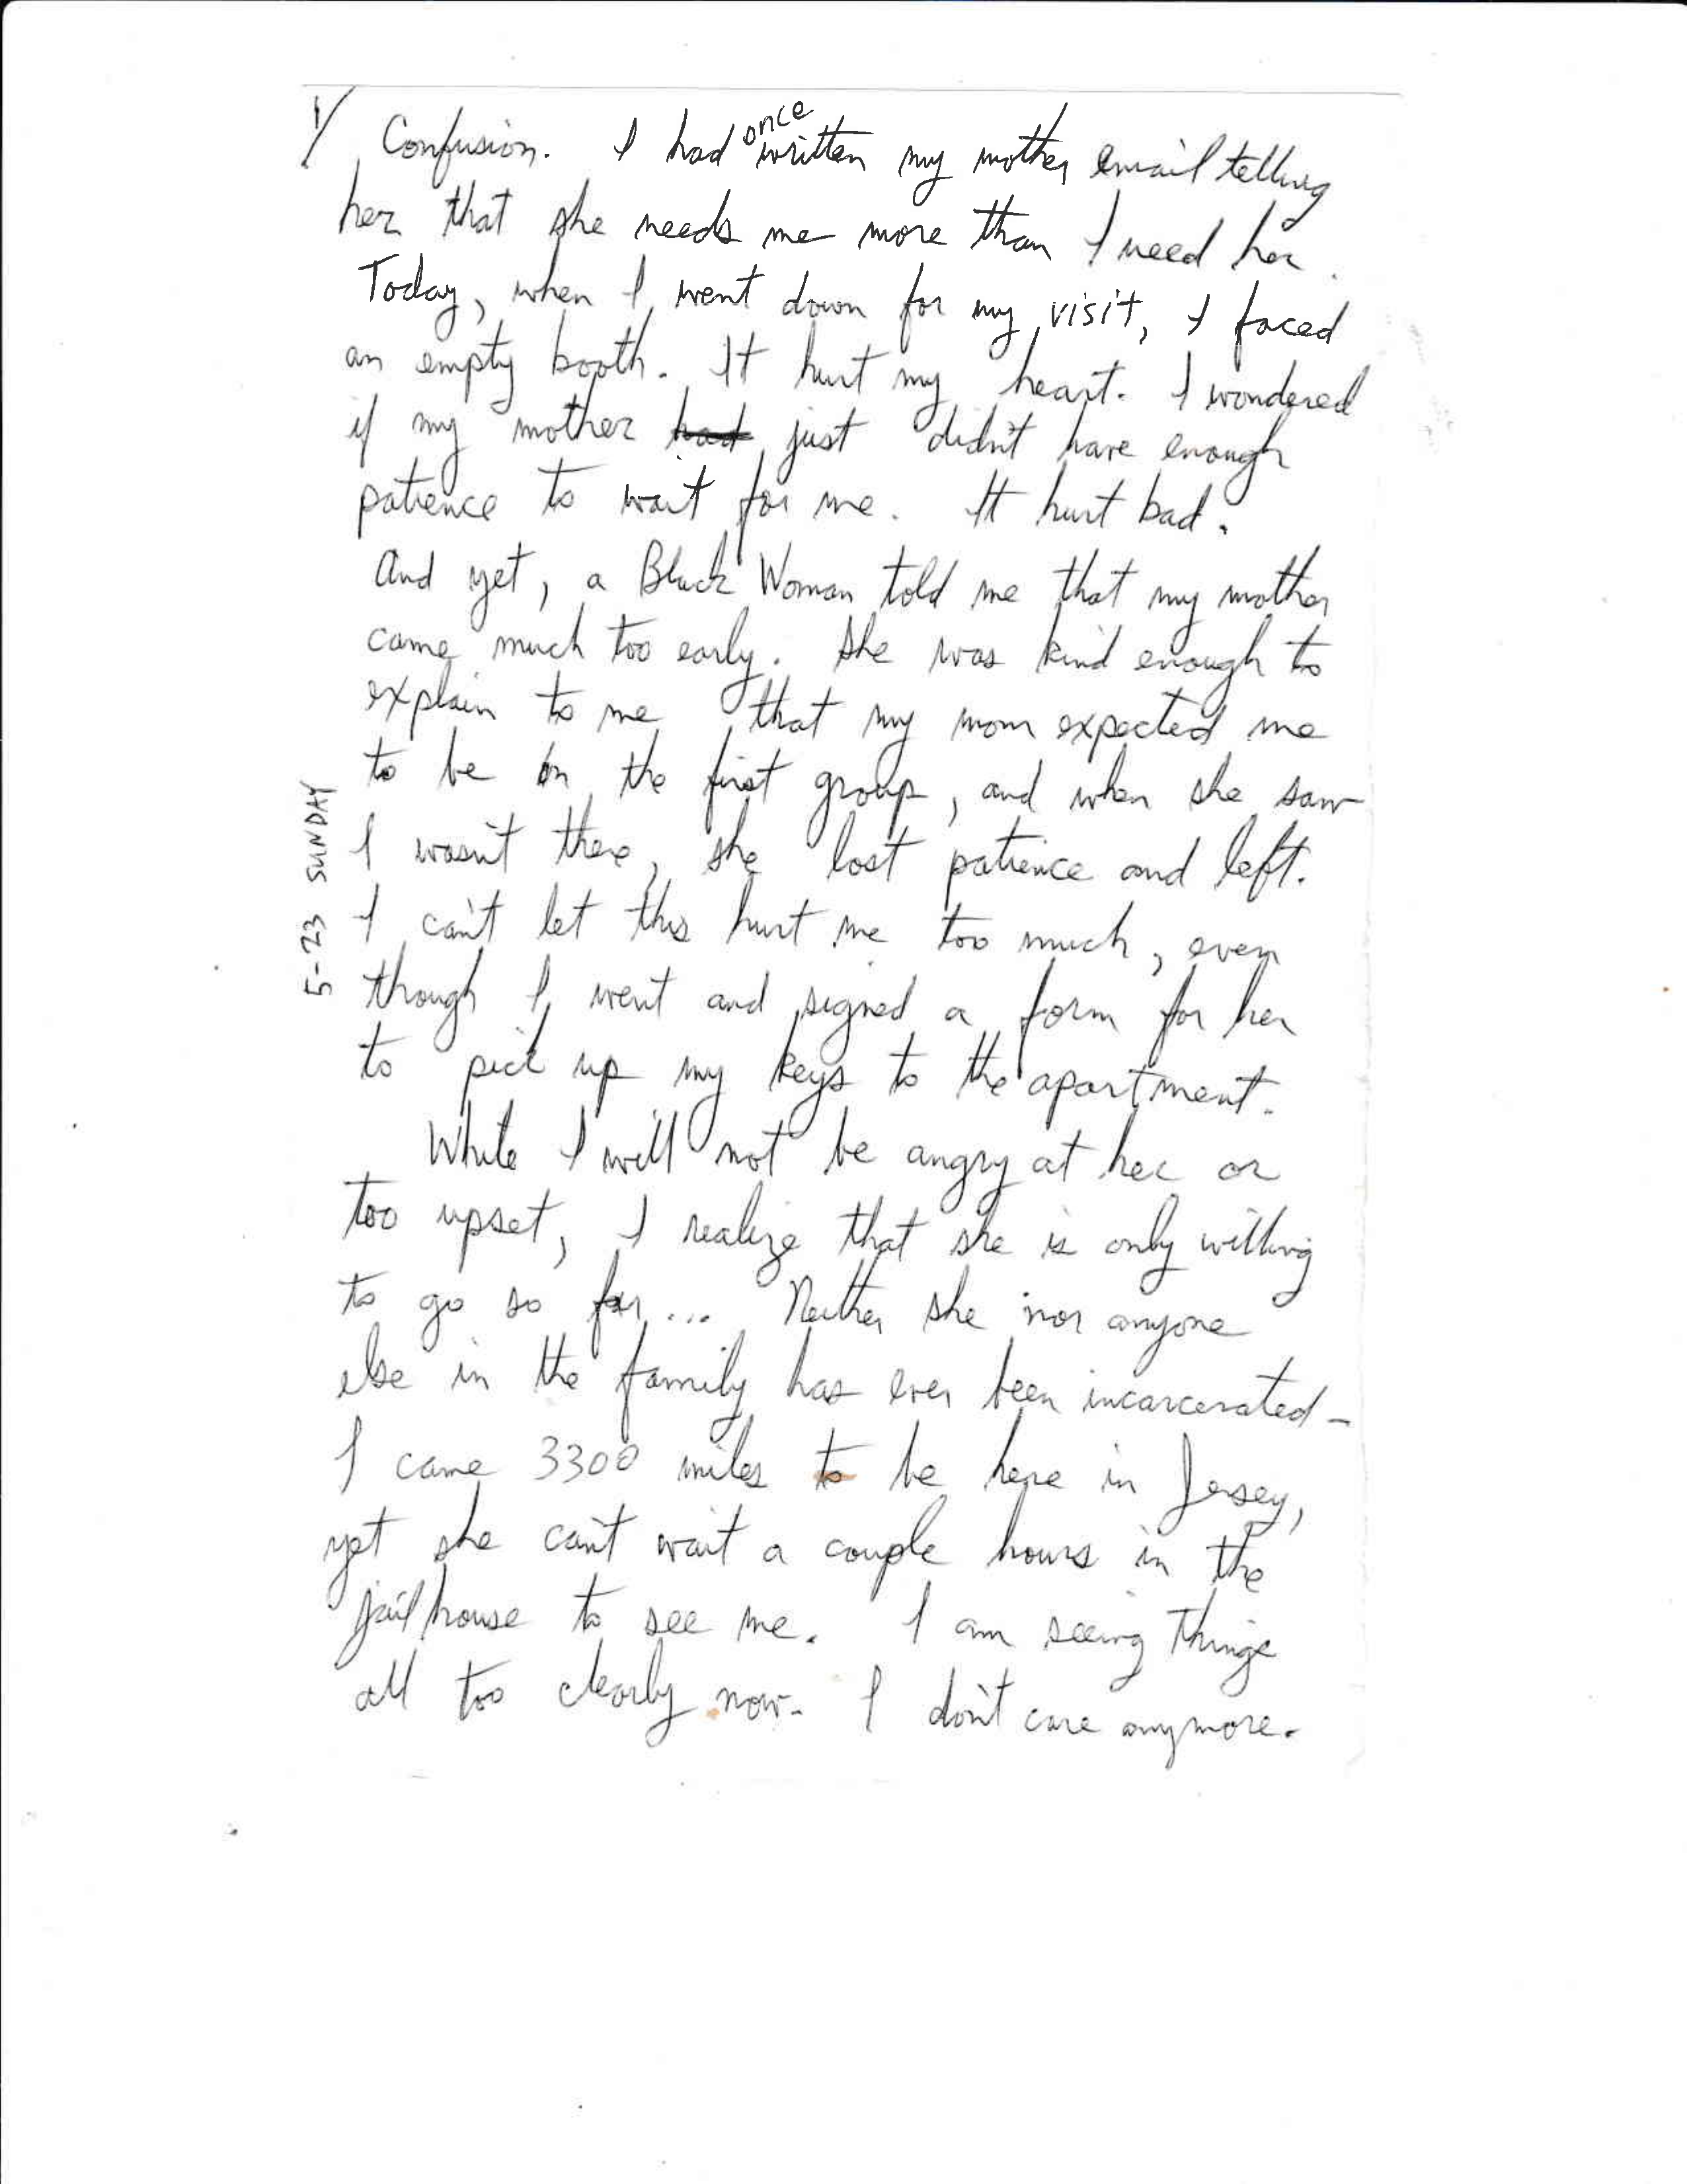 1/ Confusion. I had once written my mother email telling
her that she needs me more than I need her.
Today, when I went down for my visit, I faced
an empty booth. It hurt my heart. I wondered
if my mother had just didn't have enough
patience to wait for me. It hurt bad.
And yet, a Black Woman told me that my mother
came much too early. She was kind enough to
explain to me that my mom expected me
to be in the first group, and when she saw
I wasn't there, she lost patience and left.
I can't let this hurt me too much, even
though I went and signed a form for her
to pick up my keys to the apartment.
While I will not be angry at her or
too upset, I realize that she is only willing
to go so far... Neither she nor anyone
else in the family has ever been incarcerated -
I came 3300 miles to be here in Jersey,
yet she can't wait a couple hours in the
jailhouse to see me. I am seeing things
all too clearly now. I don't care anymore.
5-23 SUNDAY